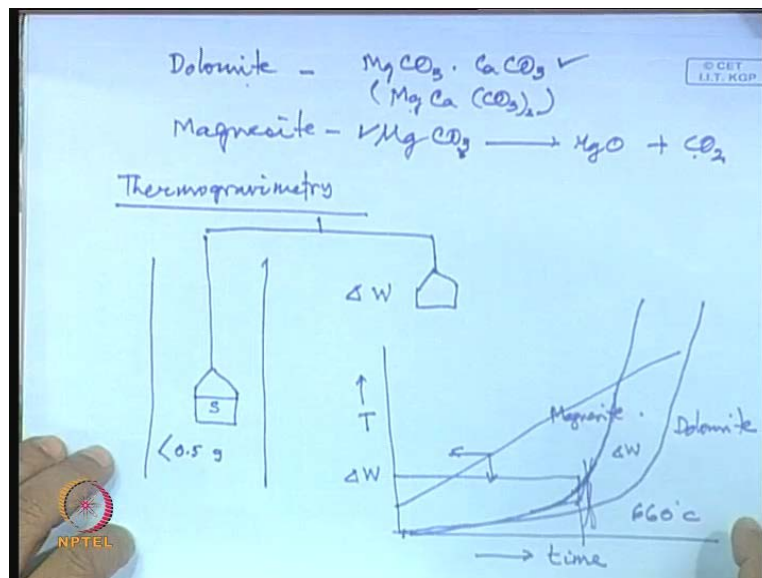 Dolomite - MgCO3 · CaCO3 ✓
(MgCa (CO3)2)
© CET
I.I.T. KGP
Magnesite - ✓MgCO3 → MgO + CO2
Thermogravimetry
ΔW
S
<0.5 g
↑
T
ΔW
Magnesite
Dolomite
ΔW
660°C
→ time
NPTEL